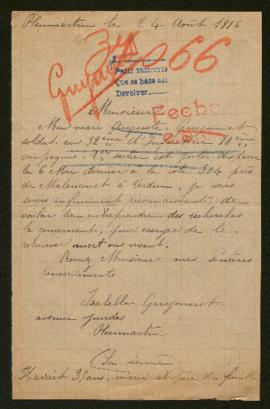 Pleumartin le 24 Août 1916
34066
Guyonnet
Pedir informes
Que se hace así.
Devolver
Fecho
Monsieur
Mon mari Auguste Guyonnet
soldat au 32ème d'infanterie 10ème
compagnie section est porté disparu
le 6 Mai dernier à la cote 304 près
de Malancourt à Verdun, je vous
serais infiniment reconnaissante de
vouloir bien entreprendre des recherches
le concernant, pour essayer de le
retrouver mort ou vivant.
Recevez Monsieur mes sincères
remerciements
Isabelle Guyonnet
avenue Jourdes
Pleumartin
Vienne
Il avait 39 ans, marié et père de famille